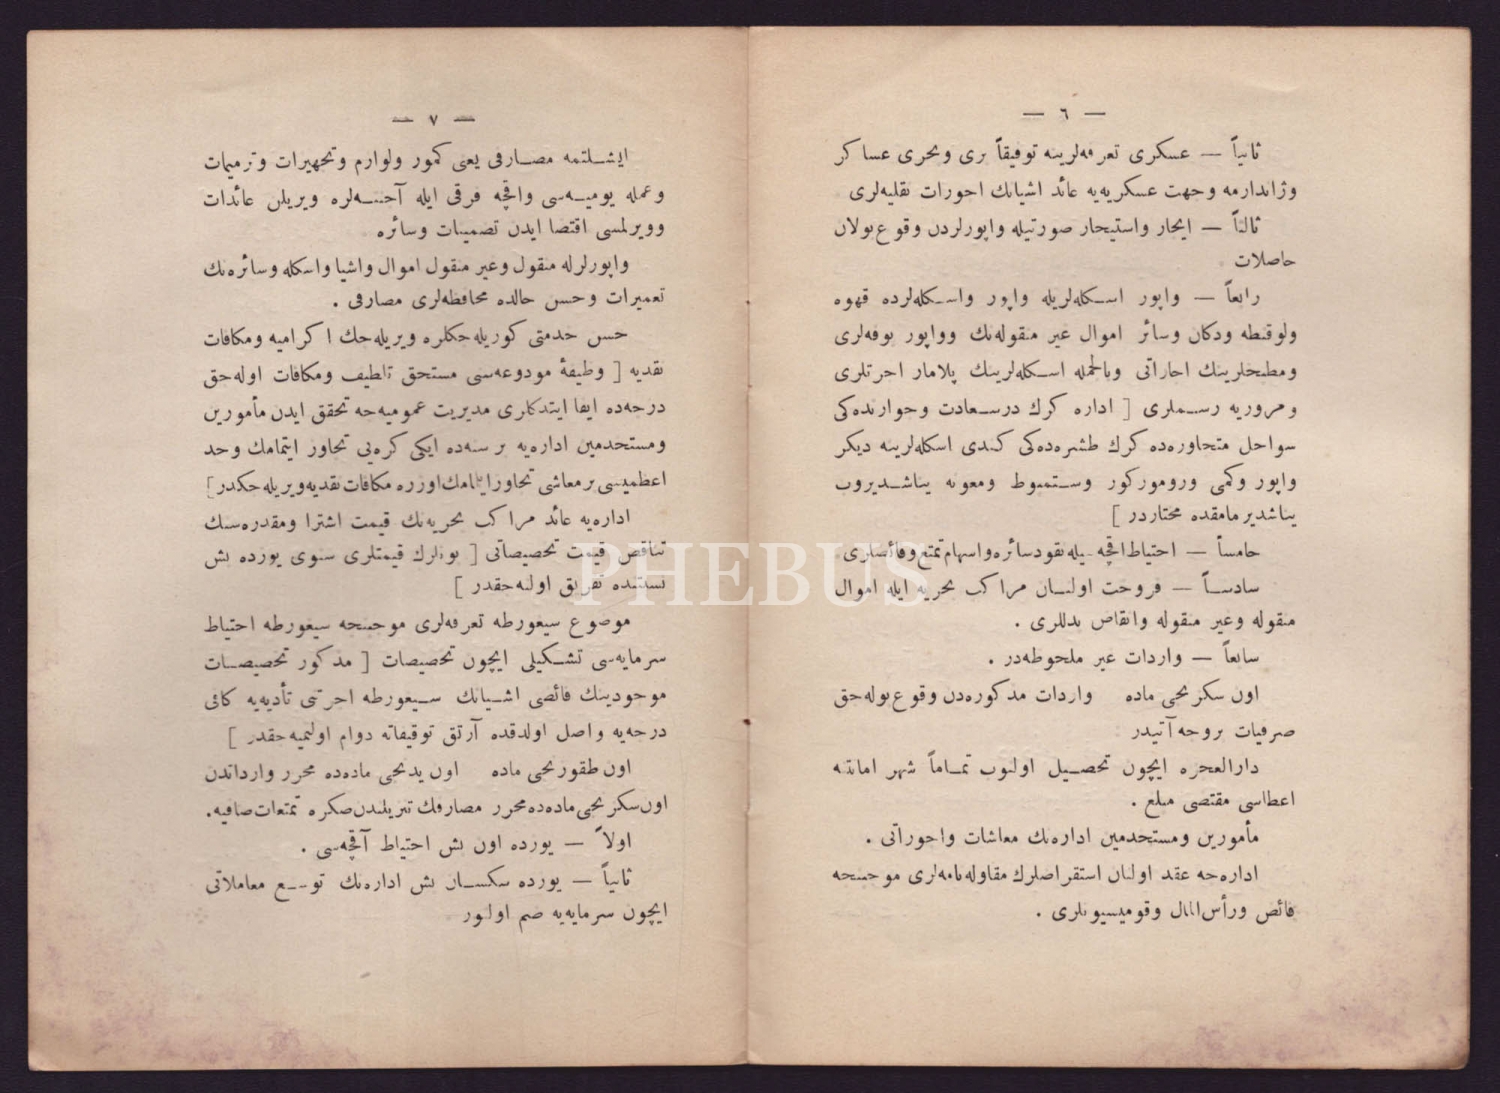 — ٦ —
ثانیاً — عسكری تعرفه‌لرینه توفیقاً بری وبحری عساكر
وژاندارمه وجهت عسكریه‌یه عائد اشیانك اجورات نقلیه‌لری
ثالثاً — ایجار واستیجار صورتیله واپورلردن وقوع‌بولان
حاصلات
رابعاً — واپور اسكله‌لریله واپور واسكله‌لرده قهوه
ولوقنطه ودكان وسائر اموال غیر منقوله‌نك وواپور بوفه‌لری
ومطبخلرینك اجاراتی وبالجمله اسكله‌لرینك پلامار اجرتلری
ومروریه رسملری [ اداره كرك درسعادت وجوارنده‌كی
سواحل متجاوره‌ده كرك طشره‌ده‌كی كندی اسكله‌لرینه دیكر
واپور وكمی ورومورکور وستمبوط ومعونه یناشدیروب
یناشدیرمامقده مختاردر ]
خامساً — احتیاط‌اقچه‌سیله‌نقودسائره‌واسهام‌تمتع‌وفائضلری.
سادساً — فروخت اولنان مراكب بحریه ایله اموال
منقوله وغیر منقوله وانقاض بدللری .
سابعاً — واردات غیر ملحوظه‌در .
اون سكزنجی ماده واردات مذكوره‌دن وقوع‌بوله‌جق
صرفیات بروجه‌آتیدر
دارالعجزه ایچون تحصیل اولنوب تماماً شهر امانتنه
اعطاسی مقتضی مبلغ .
مأمورین ومستخدمین اداره‌نك معاشات واجوراتی .
اداره‌جه عقد اولنان استقراضلرك مقاوله‌نامه‌لری موجبنجه
فائض ورأس‌المال وقومیسیونلری .
— ٧ —
ایشلتمه مصارفی یعنی كمور ولوازم وتجهیزات وترمیمات
وعمله یومیه‌سی واقچه فرقی ایله آجنته‌لره ویریلن عائدات
وویرلمسی اقتضا ایدن تضمینات وسائره
واپورلرله منقول وغیر منقول اموال واشیا واسكله وسائره‌نك
تعمیرات وحسن حالده محافظه‌لری مصارفی .
حسن خدمتی كوریله‌جكلره ویریله‌جك اكرامیه ومكافات
نقدیه [ وظیفهٔ مودوعه‌سی مستحق تلطیف ومكافات اوله‌جق
درجه‌ده ایفا ایتدكلری مدیریت عمومیه‌جه تحقق ایدن مأمورین
ومستخدمین اداره‌یه بر سنه‌ده ایكی كره‌یی تجاوز ایتمامك وحد
اعظمیسی‌برمعاشی تجاوزایلمامك‌اوزره مكافات‌نقدیه‌ویریله‌جكدر]
اداره‌یه عائد مراكب بحریه‌نك قیمت اشترا ومقدره‌سنك
تناقص قیمت تخصیصاتی [ بونلرك قیمتلری سنوی یوزده بش
نسبتنده تفریق اولنه‌جقدر ]
موضوع سیغورطه تعرفه‌لری موجبنجه سیغورطه احتیاط
سرمایه‌سی تشكیلی ایچون تخصیصات [ مذكور تخصیصات
موجودینك فائضی اشیانك سیغورطه اجرتنی تأدیه‌یه كافی
درجه‌یه واصل اولدقده آرتق توقیفاته دوام اولنمیه‌جقدر ]
اون طقوزنجی ماده اون یدنجی ماده‌ده محرر وارداتدن
اون‌سكزنجی‌ماده‌ده‌محرر مصارفك تنزیلندن‌صكره تمتعات‌صافیه.
اولاً — یوزده اون بش احتیاط آقچه‌سی .
ثانیاً — یوزده سكسان بش اداره‌نك توسع معاملاتی
ایچون سرمایه‌یه ضم اولنور
PHEBUS